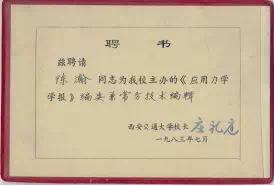 聘书
兹聘请
陈瀚同志为我校主办的《应用力学
学报》编委兼常务技术编辑
西安交通大学校长 庄礼庭
一九八三年七月